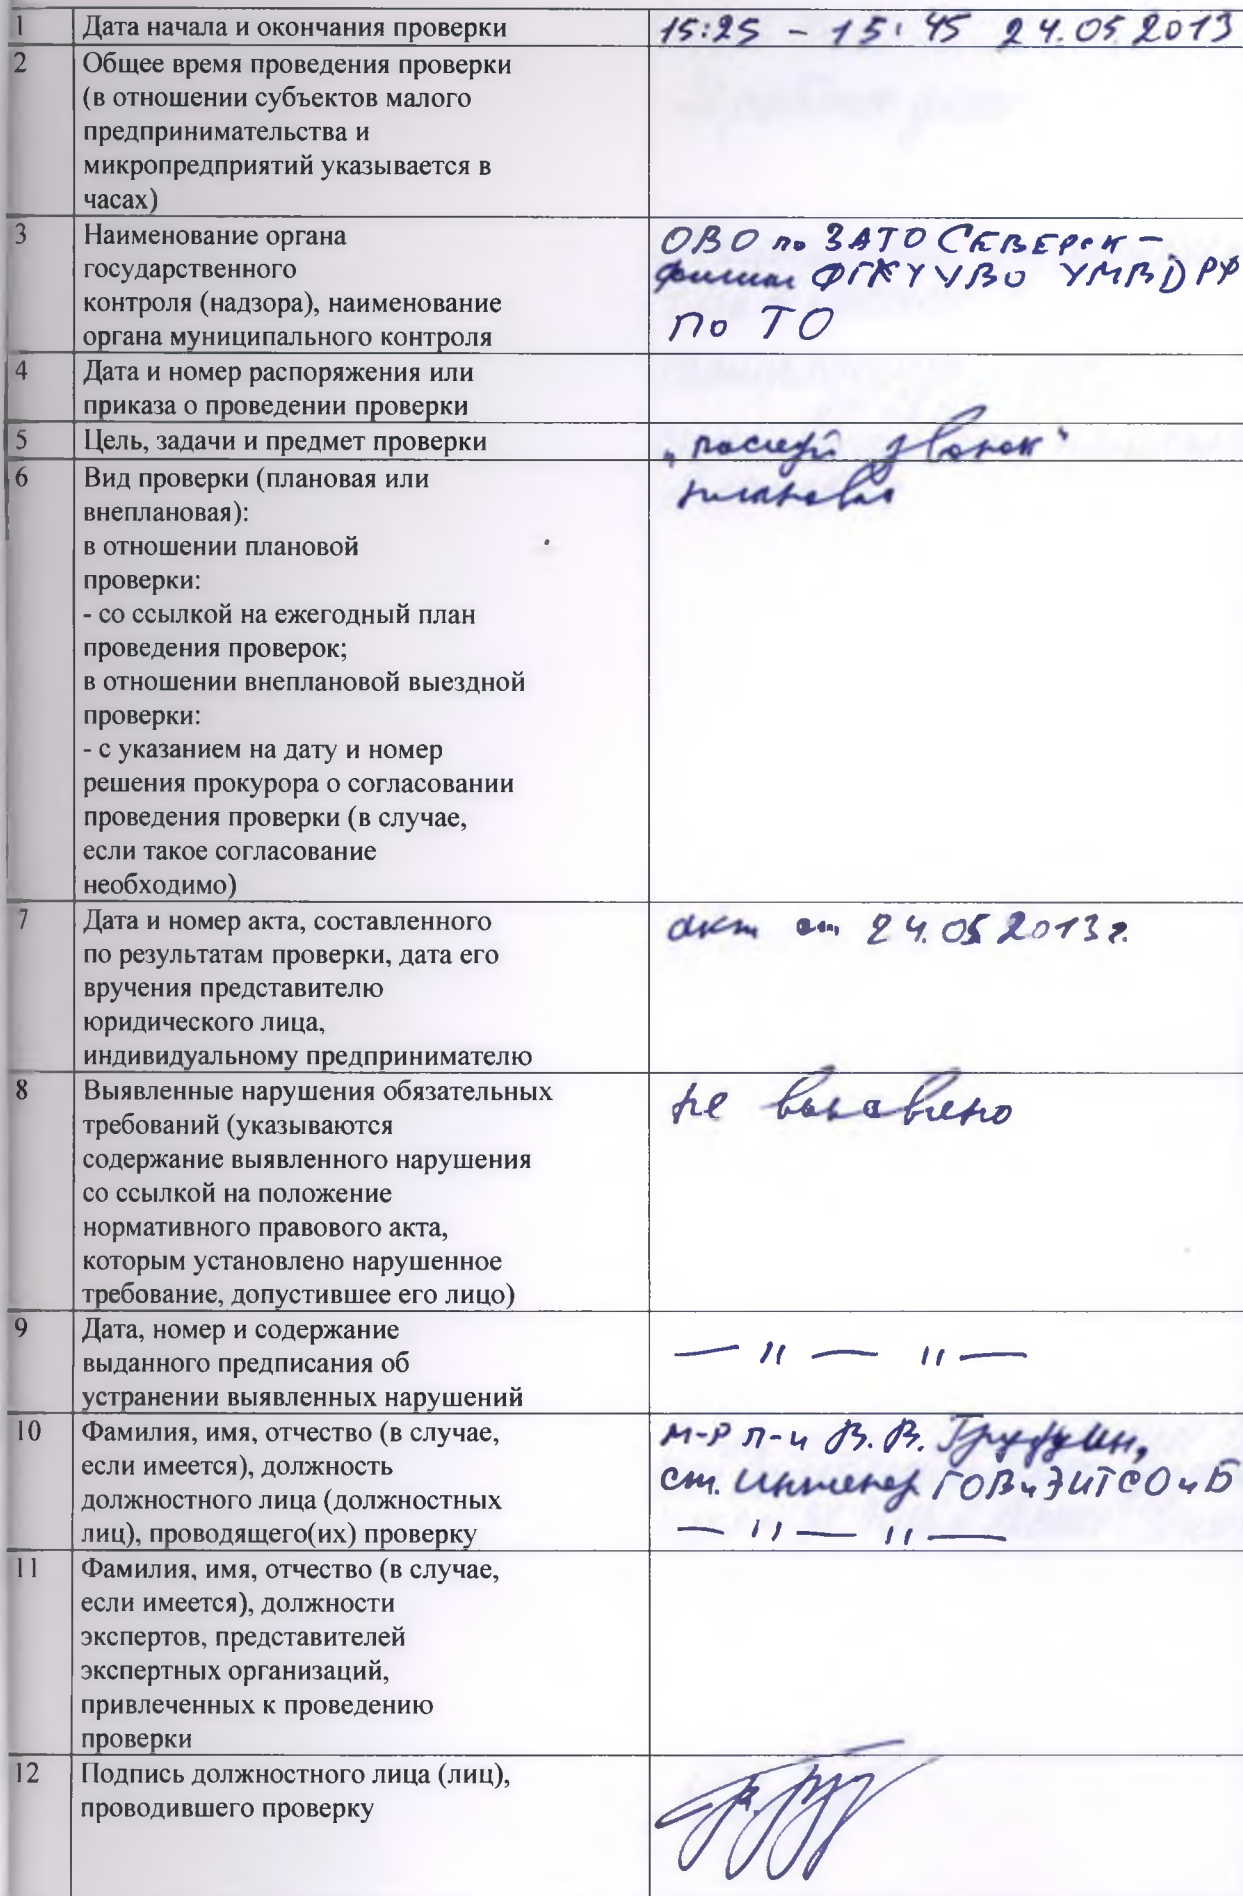 1 Дата начала и окончания проверки 15:25 - 15:45 24.05.2013
2 Общее время проведения проверки
(в отношении субъектов малого
предпринимательства и
микропредприятий указывается в
часах)
3 Наименование органа ОВО по ЗАТО СЕВЕРСК -
государственного филиал ФГКУ УВО УМВД РФ
контроля (надзора), наименование по ТО
органа муниципального контроля
4 Дата и номер распоряжения или
приказа о проведении проверки
5 Цель, задачи и предмет проверки звонок"
6 Вид проверки (плановая или плановая
внеплановая):
в отношении плановой
проверки:
- со ссылкой на ежегодный план
проведения проверок;
в отношении внеплановой выездной
проверки:
- с указанием на дату и номер
решения прокурора о согласовании
проведения проверки (в случае,
если такое согласование
необходимо)
7 Дата и номер акта, составленного акт от 24.05.2013г.
по результатам проверки, дата его
вручения представителю
юридического лица,
индивидуальному предпринимателю
8 Выявленные нарушения обязательных не выявлено
требований (указываются
содержание выявленного нарушения
со ссылкой на положение
нормативного правового акта,
которым установлено нарушенное
требование, допустившее его лицо)
9 Дата, номер и содержание
выданного предписания об — 11 — 11 —
устранении выявленных нарушений
10 Фамилия, имя, отчество (в случае, м-р п-и В.В.
если имеется), должность ст. инженер ГОВиЭИТСОиБ
должностного лица (должностных
лиц), проводящего(их) проверку — 11 — 11 —
11 Фамилия, имя, отчество (в случае,
если имеется), должности
экспертов, представителей
экспертных организаций,
привлеченных к проведению
проверки
12 Подпись должностного лица (лиц),
проводившего проверку